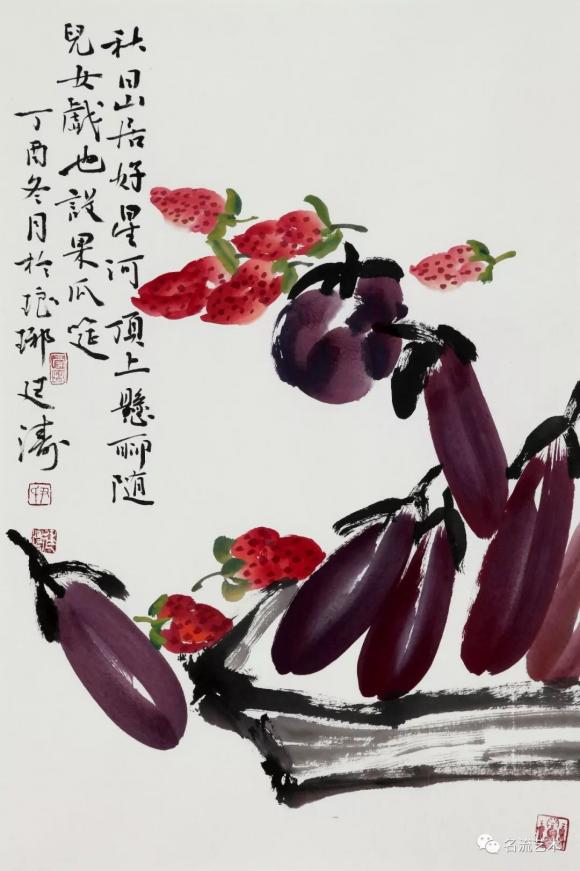 秋日山居好星河顶上懸聊随
兒女戲也設果瓜筵
丁酉冬月於琅琊廷濤
名流艺术